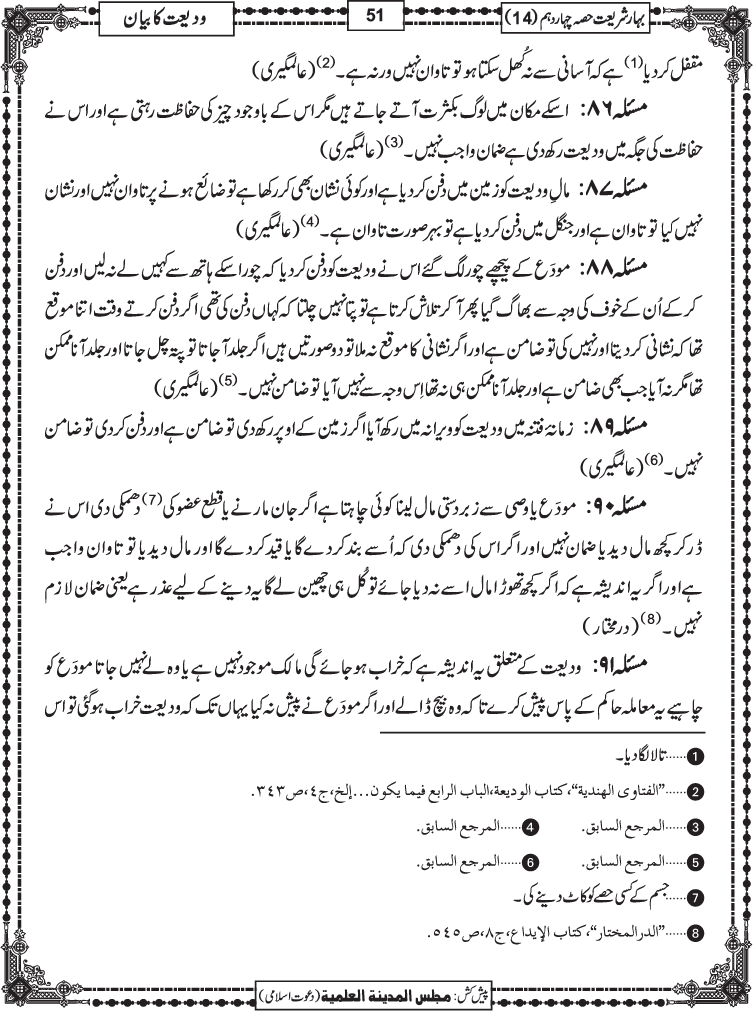 بہار شریعت حصہ چہاردہم (14)
51
ودیعت کا بیان
مقفل کردیا(1) ہے کہ آسانی سے نہ کُھل سکتا ہو تو تاوان نہیں ورنہ ہے۔(2) (عالمگیری)
مسئلہ ۸۶: اسکے مکان میں لوگ بکثرت آتے جاتے ہیں مگر اس کے باوجود چیز کی حفاظت رہتی ہے اور اس نے
حفاظت کی جگہ میں ودیعت رکھ دی ہے ضمان واجب نہیں۔(3) (عالمگیری)
مسئلہ ۸۷: مالِ ودیعت کو زمین میں دفن کردیا ہے اور کوئی نشان بھی کر رکھا ہے تو ضائع ہونے پر تاوان نہیں اور نشان
نہیں کیا تو تاوان ہے اور جنگل میں دفن کردیا ہے تو بہر صورت تاوان ہے۔(4) (عالمگیری)
مسئلہ ۸۸: مودَع کے پیچھے چور لگ گئے اس نے ودیعت کو دفن کردیا کہ چور اسکے ہاتھ سے کہیں لے نہ لیں اور دفن
کرکے اُن کے خوف کی وجہ سے بھاگ گیا پھر آکر تلاش کرتا ہے تو پتا نہیں چلتا کہ کہاں دفن کی تھی اگر دفن کرتے وقت اتنا موقع
تھا کہ نشانی کردیتا اور نہیں کی تو ضامن ہے اور اگر نشانی کا موقع نہ ملا تو دو صورتیں ہیں اگر جلد آجاتا تو پتہ چل جاتا اور جلد آنا ممکن
تھا مگر نہ آیا جب بھی ضامن ہے اور جلد آنا ممکن ہی نہ تھا اِس وجہ سے نہیں آیا تو ضامن نہیں۔(5) (عالمگیری)
مسئلہ ۸۹: زمانۂ فتنہ میں ودیعت کو ویرانہ میں رکھ آیا اگر زمین کے اوپر رکھ دی تو ضامن ہے اور دفن کردی تو ضامن
نہیں۔(6) (عالمگیری)
مسئلہ ۹۰: مودَع یا وصی سے زبردستی مال لینا کوئی چاہتا ہے اگر جان مارنے یا قطع عضو کی(7) دھمکی دی اس نے
ڈر کر کچھ مال دیدیا ضمان نہیں اور اگر اس کی دھمکی دی کہ اُسے بند کردے گا یا قید کردے گا اور مال دیدیا تو تاوان واجب
ہے اور اگر یہ اندیشہ ہے کہ اگر کچھ تھوڑا مال اسے نہ دیا جائے تو کُل ہی چھین لے گا یہ دینے کے لیے عذر ہے یعنی ضمان لازم
نہیں۔(8) (درمختار)
مسئلہ ۹۱: ودیعت کے متعلق یہ اندیشہ ہے کہ خراب ہوجائے گی مالک موجود نہیں ہے یا وہ لے نہیں جاتا مودَع کو
چاہیے یہ معاملہ حاکم کے پاس پیش کرے تاکہ وہ بیچ ڈالے اور اگر مودَع نے پیش نہ کیا یہاں تک کہ ودیعت خراب ہوگئی تو اس
1......تالا لگا دیا۔
2......"الفتاوى الهندية"،كتاب الوديعة،الباب الرابع فيما يكون...إلخ،ج٤،ص٣٤٣.
3......المرجع السابق. 4......المرجع السابق.
5......المرجع السابق. 6......المرجع السابق.
7......جسم کے کسی حصے کو کاٹ دینے کی۔
8......"الدرالمختار"،كتاب الإيداع،ج٨،ص٥٤٥.
پیش کش: مجلس المدينة العلمية (دعوت اسلامی)